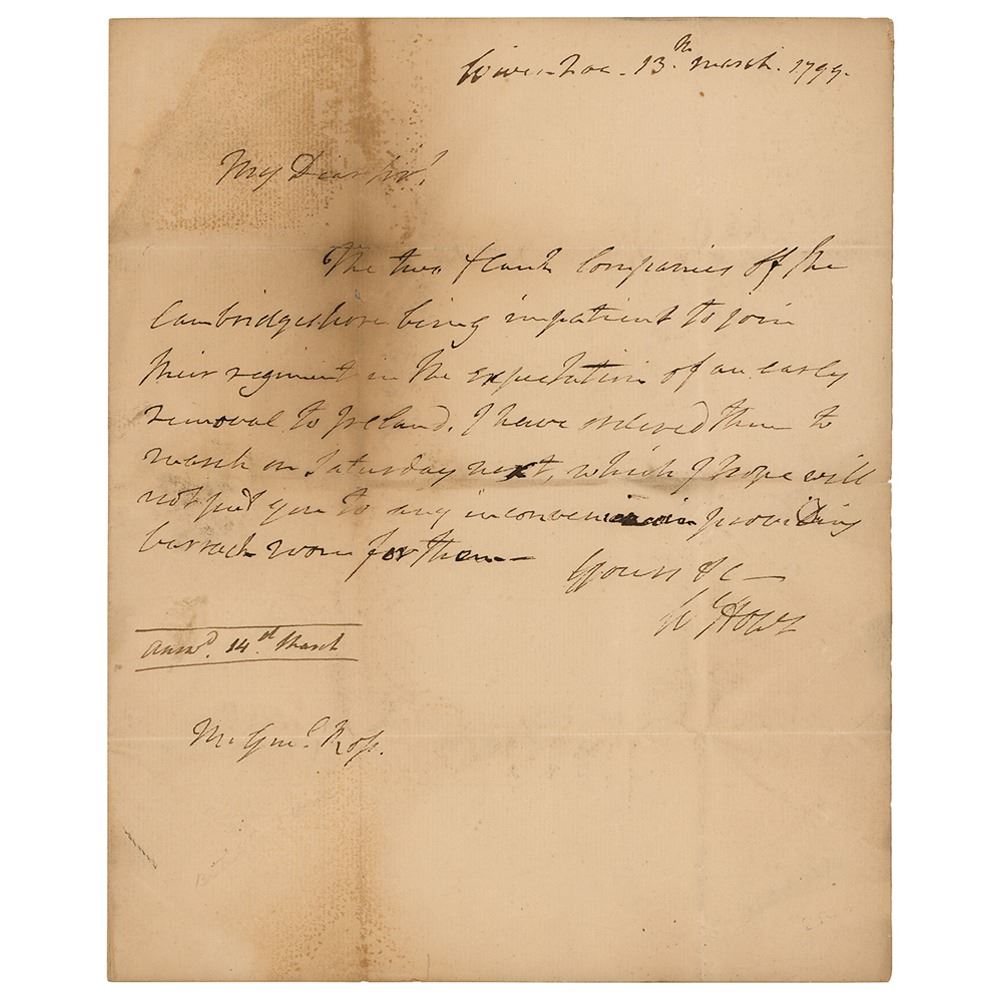 Wivenhoe. 13th March. 1799.
My Dear Sir!
The two flank Companies of the
Cambridgeshire being impatient to join
their regiment in the expectation of an early
removal to Ireland. I have ordered them to
march on Saturday next, which I hope will
not put you to any inconvenience in providing
barrack room for them—
Yours &c—
W Howe
Answd. 14th March
M. Genl. Ross.